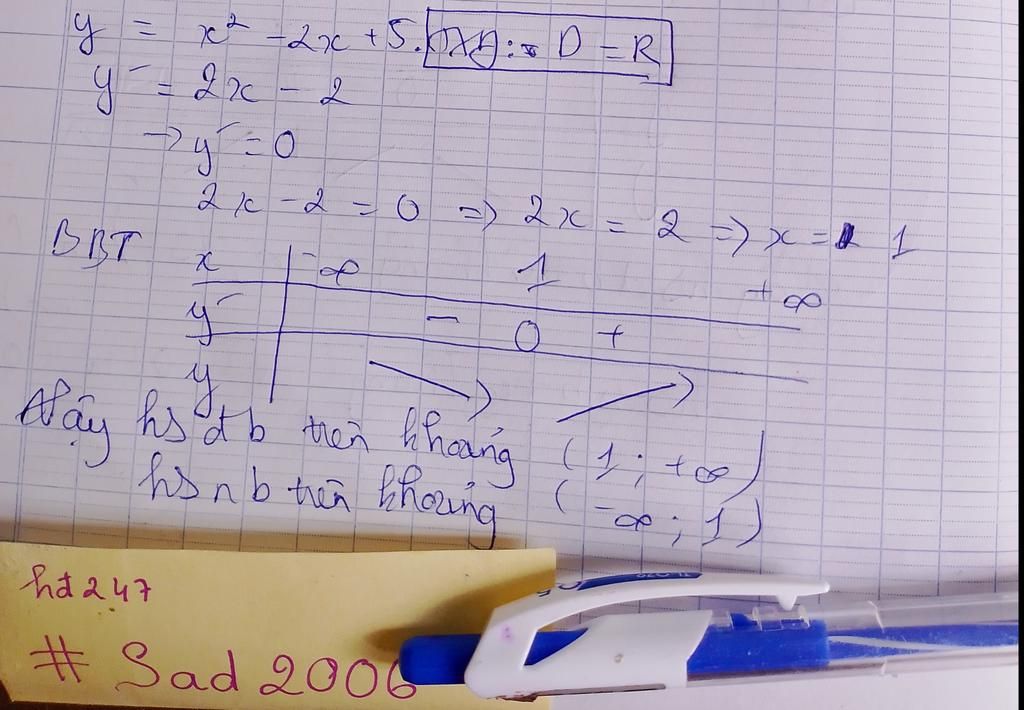 y = x² - 2x + 5. TXĐ: D = R
y' = 2x - 2
→ y' = 0
2x - 2 = 0 => 2x = 2 => x = 1
BBT
x -∞ 1 +∞
y' - 0 +
y
Vậy hs đb trên khoảng (1; +∞)
hs nb trên khoảng (-∞; 1)
hd247
# Sad 2006